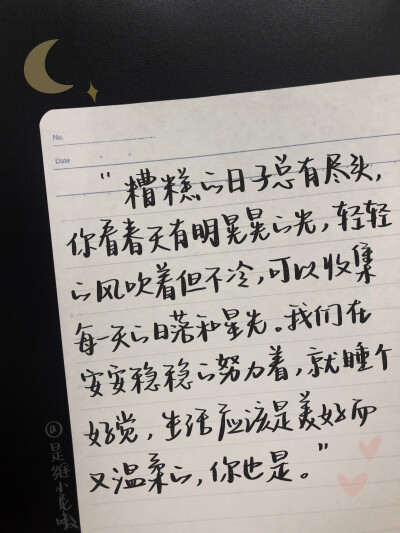 No.
Date
“糟糕的日子总有尽头，
你看春天有明晃晃的光，轻轻
的风吹着但不冷，可以收集
每一天的日落和星光。我们在
安安稳稳的努力着，就睡个
好觉，生活应该是美好而
又温柔的，你也是。”